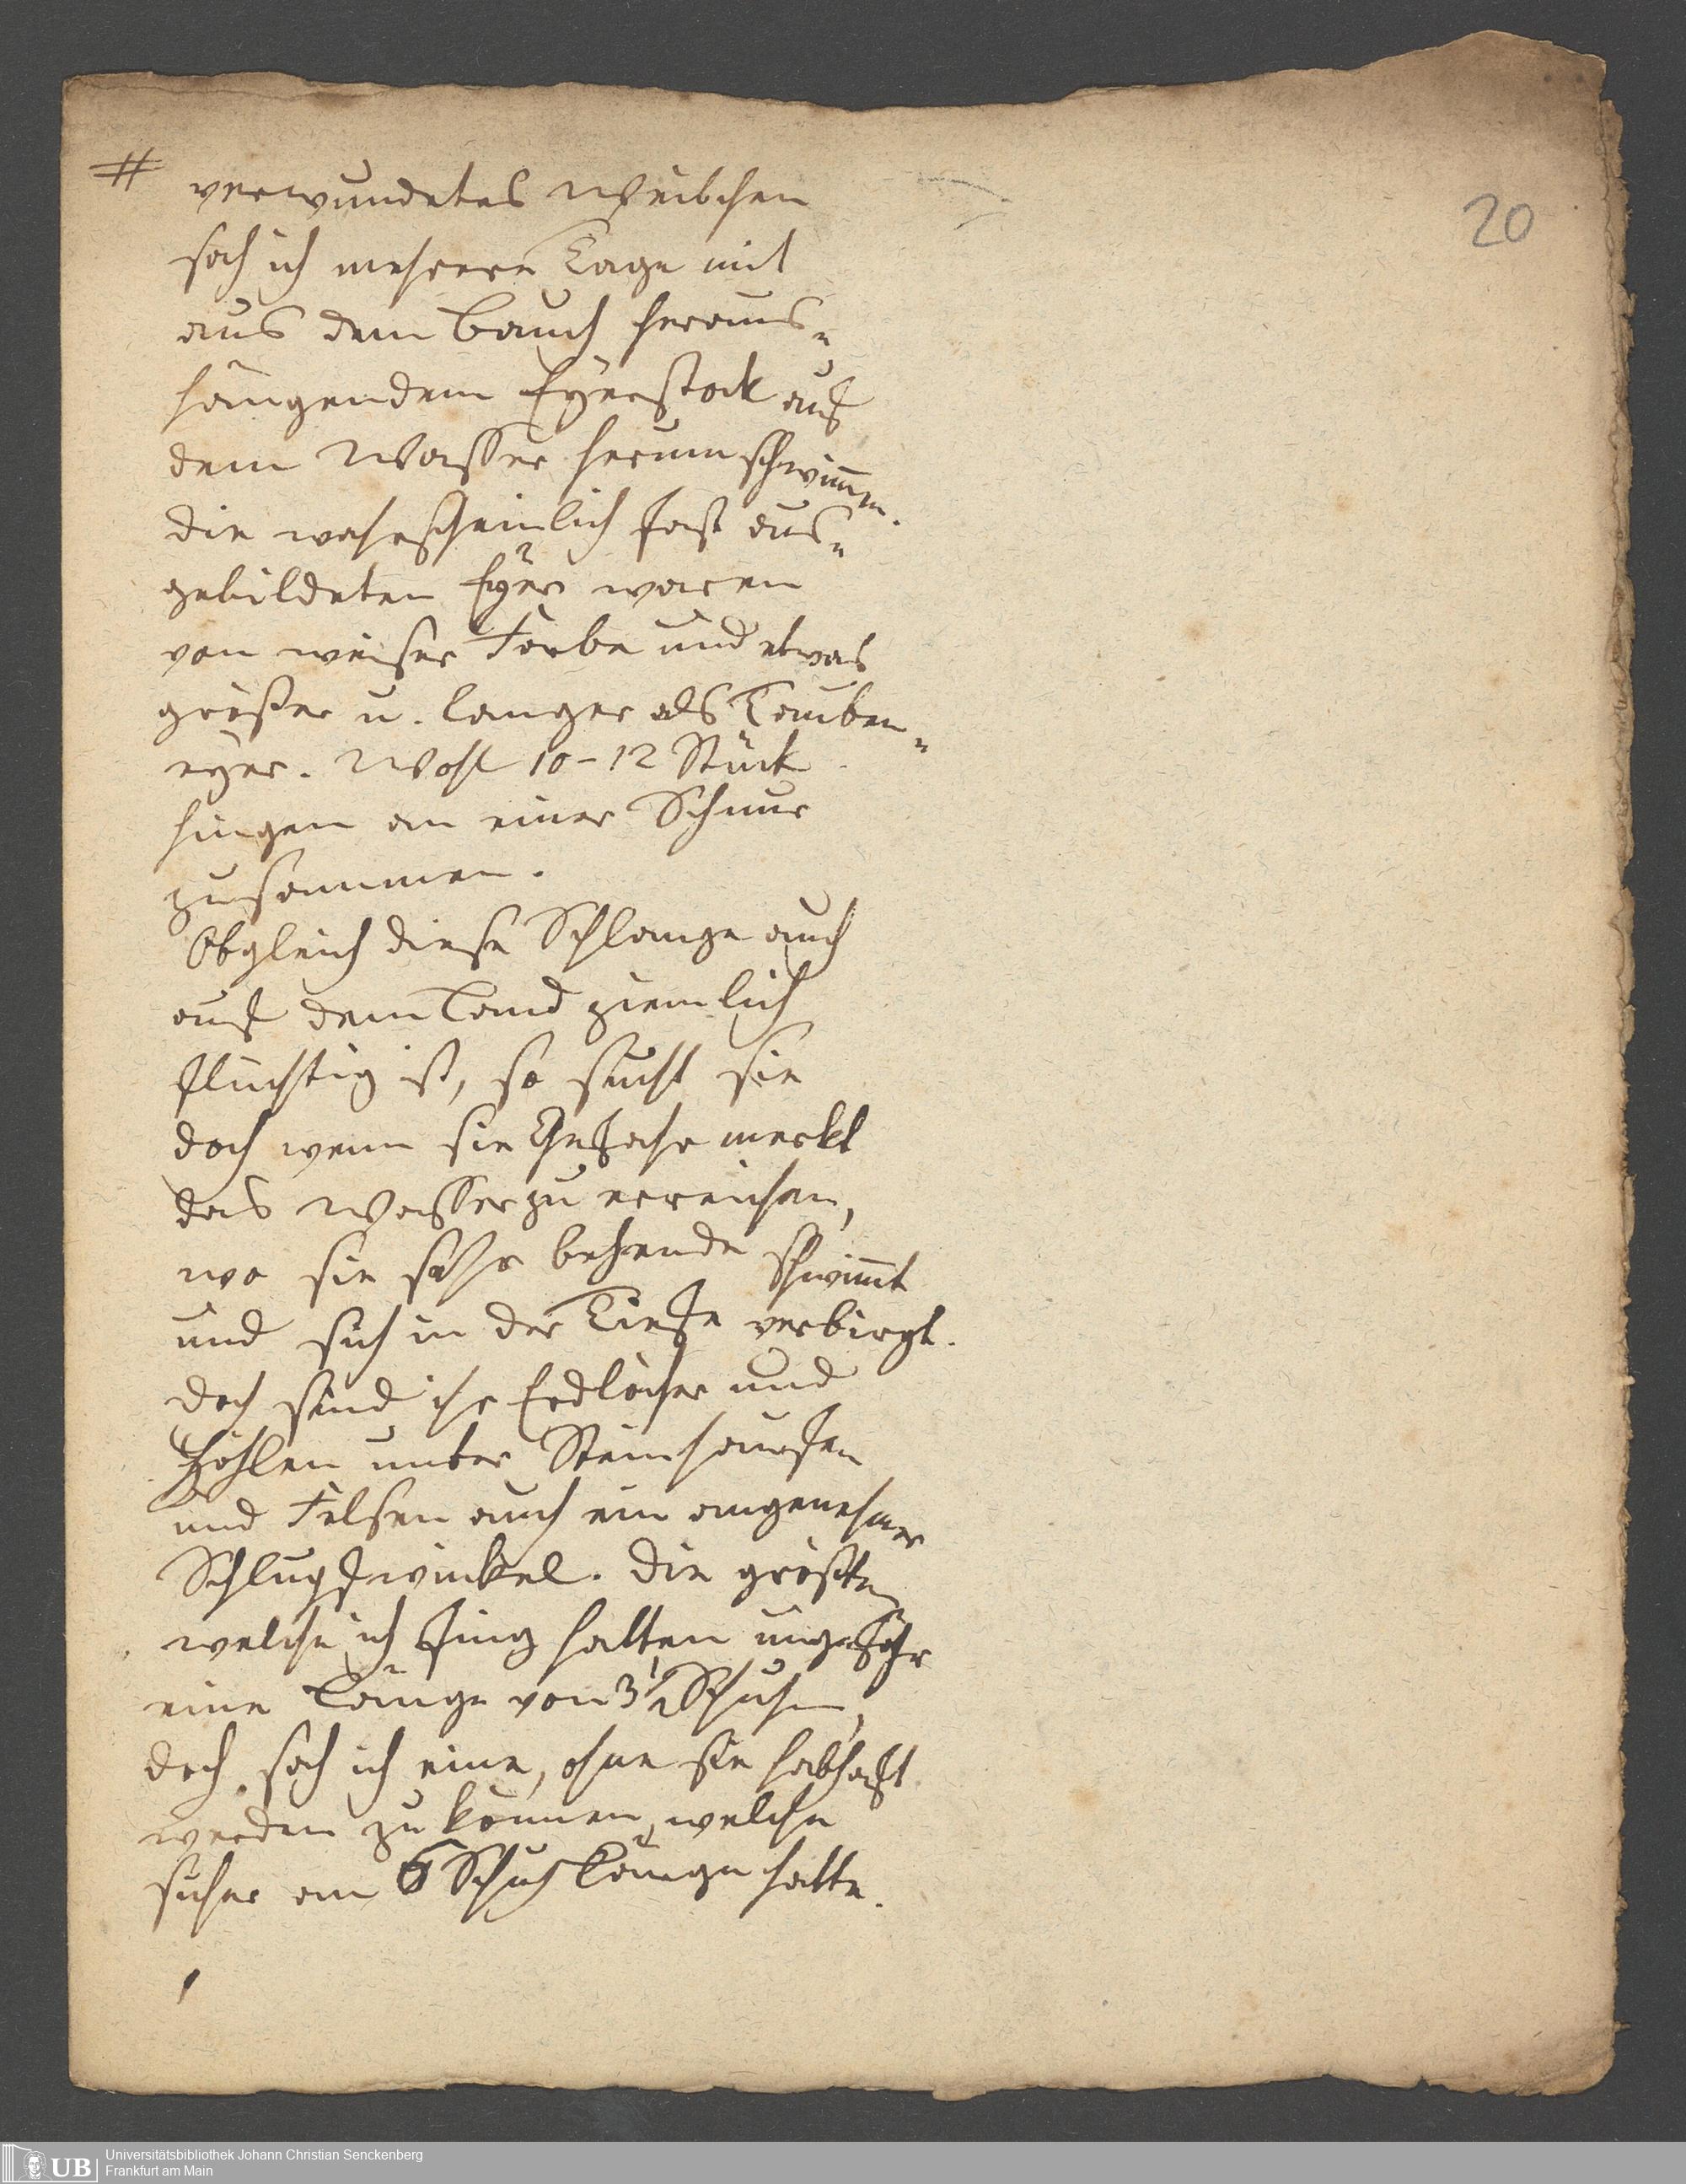 # verwundetes Weibchen
20
sah ich mehrere Tage mit
aus dem Bauch heraus„
hängendem Eyerstock auf
dem Wasser herumschwim̄en.
die wahrscheinlich fast aus„
gebildeten Eyer waren
von weiser Farbe und etwas
gröſser u. langer als Tauben„
eyer. Wohl 10-12 Stück
hingen an einer Schnur
zusammen.
Obgleich diese Schlange auch
auf dem Land ziemlich
fluchtig ist, so sucht sie
doch wenn sie Gefahr merkt
das Wasser zu erreichen,
wo sie sehr behende schwim̄t
und sich in der Tiefe verbirgt.
doch sind ihr Erdlöcher und
Höhlen unter Steinhaufen
und Felsen auch ein angenehmer
Schlupfwinkel. die gröſsten
welche ich fing hatten ungefähr
eine Länge von 3 1/2 Schuhen,
doch sah ich eine, ohne sie habhaft
werden zu können, welche
sicher an 6 Schuh Länge hatte.
UB Universitätsbibliothek Johann Christian Senckenberg
Frankfurt am Main